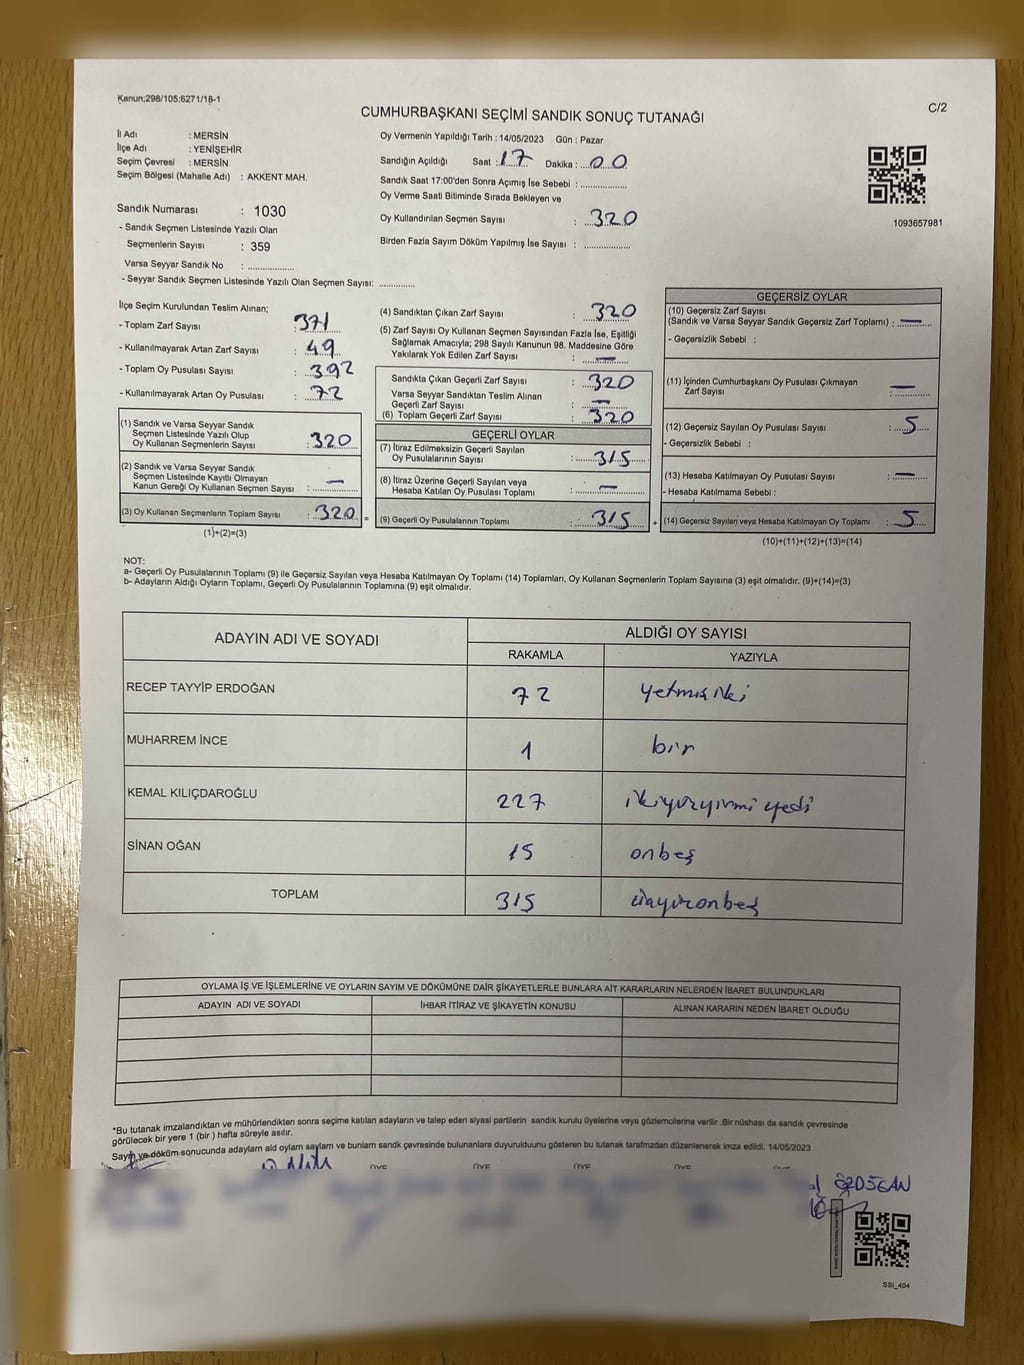 Kanun;298/105;6271/18-1
C/2
CUMHURBAŞKANI SEÇİMİ SANDIK SONUÇ TUTANAĞI
İl Adı : MERSİN
İlçe Adı : YENİŞEHİR
Seçim Çevresi : MERSİN
Seçim Bölgesi (Mahalle Adı) : AKKENT MAH.
Sandık Numarası : 1030
- Sandık Seçmen Listesinde Yazılı Olan
Seçmenlerin Sayısı : 359
Varsa Seyyar Sandık No : ..................
- Seyyar Sandık Seçmen Listesinde Yazılı Olan Seçmen Sayısı: ..............
Oy Vermenin Yapıldığı Tarih : 14/05/2023 Gün : Pazar
Sandığın Açıldığı Saat : 17 Dakika : 00
Sandık Saat 17:00'den Sonra Açımış İse Sebebi : ..................
Oy Verme Saati Bitiminde Sırada Bekleyen ve
Oy Kullandırılan Seçmen Sayısı : 320
Birden Fazla Sayım Döküm Yapılmış İse Sayısı : ..................
1093657981
İlçe Seçim Kurulundan Teslim Alınan;
- Toplam Zarf Sayısı : 371
- Kullanılmayarak Artan Zarf Sayısı : 49
- Toplam Oy Pusulası Sayısı : 392
- Kullanılmayarak Artan Oy Pusulası : 72
(1) Sandık ve Varsa Seyyar Sandık
Seçmen Listesinde Yazılı Olup
Oy Kullanan Seçmenlerin Sayısı : 320
(2) Sandık ve Varsa Seyyar Sandık
Seçmen Listesinde Kayıtlı Olmayan
Kanun Gereği Oy Kullanan Seçmen Sayısı : —
(3) Oy Kullanan Seçmenlerin Toplam Sayısı : 320 =
(1)+(2)=(3)
(4) Sandıktan Çıkan Zarf Sayısı : 320
(5) Zarf Sayısı Oy Kullanan Seçmen Sayısından Fazla İse, Eşitliği
Sağlamak Amacıyla; 298 Sayılı Kanunun 98. Maddesine Göre
Yakılarak Yok Edilen Zarf Sayısı : —
Sandıkta Çıkan Geçerli Zarf Sayısı : 320
Varsa Seyyar Sandıktan Teslim Alınan
Geçerli Zarf Sayısı : —
(6) Toplam Geçerli Zarf Sayısı : 320
GEÇERLİ OYLAR
(7) İtiraz Edilmeksizin Geçerli Sayılan
Oy Pusulalarının Sayısı : 315
(8) İtiraz Üzerine Geçerli Sayılan veya
Hesaba Katılan Oy Pusulası Toplamı : —
(9) Geçerli Oy Pusulalarının Toplamı : 315 +
GEÇERSİZ OYLAR
(10) Geçersiz Zarf Sayısı
(Sandık ve Varsa Seyyar Sandık Geçersiz Zarf Toplamı) : —
- Geçersizlik Sebebi :
(11) İçinden Cumhurbaşkanı Oy Pusulası Çıkmayan
Zarf Sayısı : —
(12) Geçersiz Sayılan Oy Pusulası Sayısı : 5
- Geçersizlik Sebebi :
(13) Hesaba Katılmayan Oy Pusulası Sayısı : —
- Hesaba Katılmama Sebebi :
(14) Geçersiz Sayılan veya Hesaba Katılmayan Oy Toplamı : 5
(10)+(11)+(12)+(13)=(14)
NOT:
a- Geçerli Oy Pusulalarının Toplamı (9) ile Geçersiz Sayılan veya Hesaba Katılmayan Oy Toplamı (14) Toplamları, Oy Kullanan Seçmenlerin Toplam Sayısına (3) eşit olmalıdır. (9)+(14)=(3)
b- Adayların Aldığı Oyların Toplamı, Geçerli Oy Pusulalarının Toplamına (9) eşit olmalıdır.
ADAYIN ADI VE SOYADI ALDIĞI OY SAYISI
RAKAMLA YAZIYLA
RECEP TAYYİP ERDOĞAN 72 yetmişiki
MUHARREM İNCE 1 bir
KEMAL KILIÇDAROĞLU 227 ikiyüzyirmi yedi
SİNAN OĞAN 15 onbeş
TOPLAM 315 üçyüzonbeş
OYLAMA İŞ VE İŞLEMLERİNE VE OYLARIN SAYIM VE DÖKÜMÜNE DAİR ŞİKAYETLERLE BUNLARA AİT KARARLARIN NELERDEN İBARET BULUNDUKLARI
ADAYIN ADI VE SOYADI İHBAR İTİRAZ VE ŞİKAYETİN KONUSU ALINAN KARARIN NEDEN İBARET OLDUĞU
*Bu tutanak imzalandıktan ve mühürlendikten sonra seçime katılan adayların ve talep eden siyasi partilerin sandık kurulu üyelerine veya gözlemcilerine verilir .Bir nüshası da sandık çevresinde
görülecek bir yere 1 (bir ) hafta süreyle asılır.
Sayım ve döküm sonucunda adaylam ald oylam saylam ve bunlam sandk çevresinde bulunanlara duyuruldunu gösteren bu tutanak tarafmzdan düzenlenerek imza edildi. 14/05/2023
ÜYE ÜYE ÜYE ÜYE
SSI_404